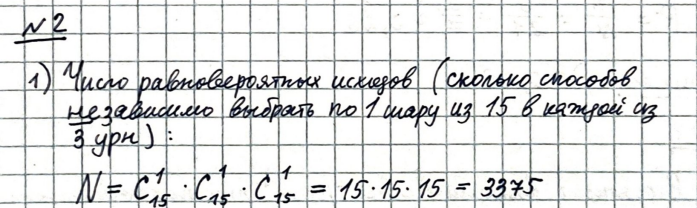 №2
1) Число равновероятных исходов (сколько способов
независимо выбрать по 1 шару из 15 в каждой из
3 урн):
N = C₁₅¹ · C₁₅¹ · C₁₅¹ = 15·15·15 = 3375